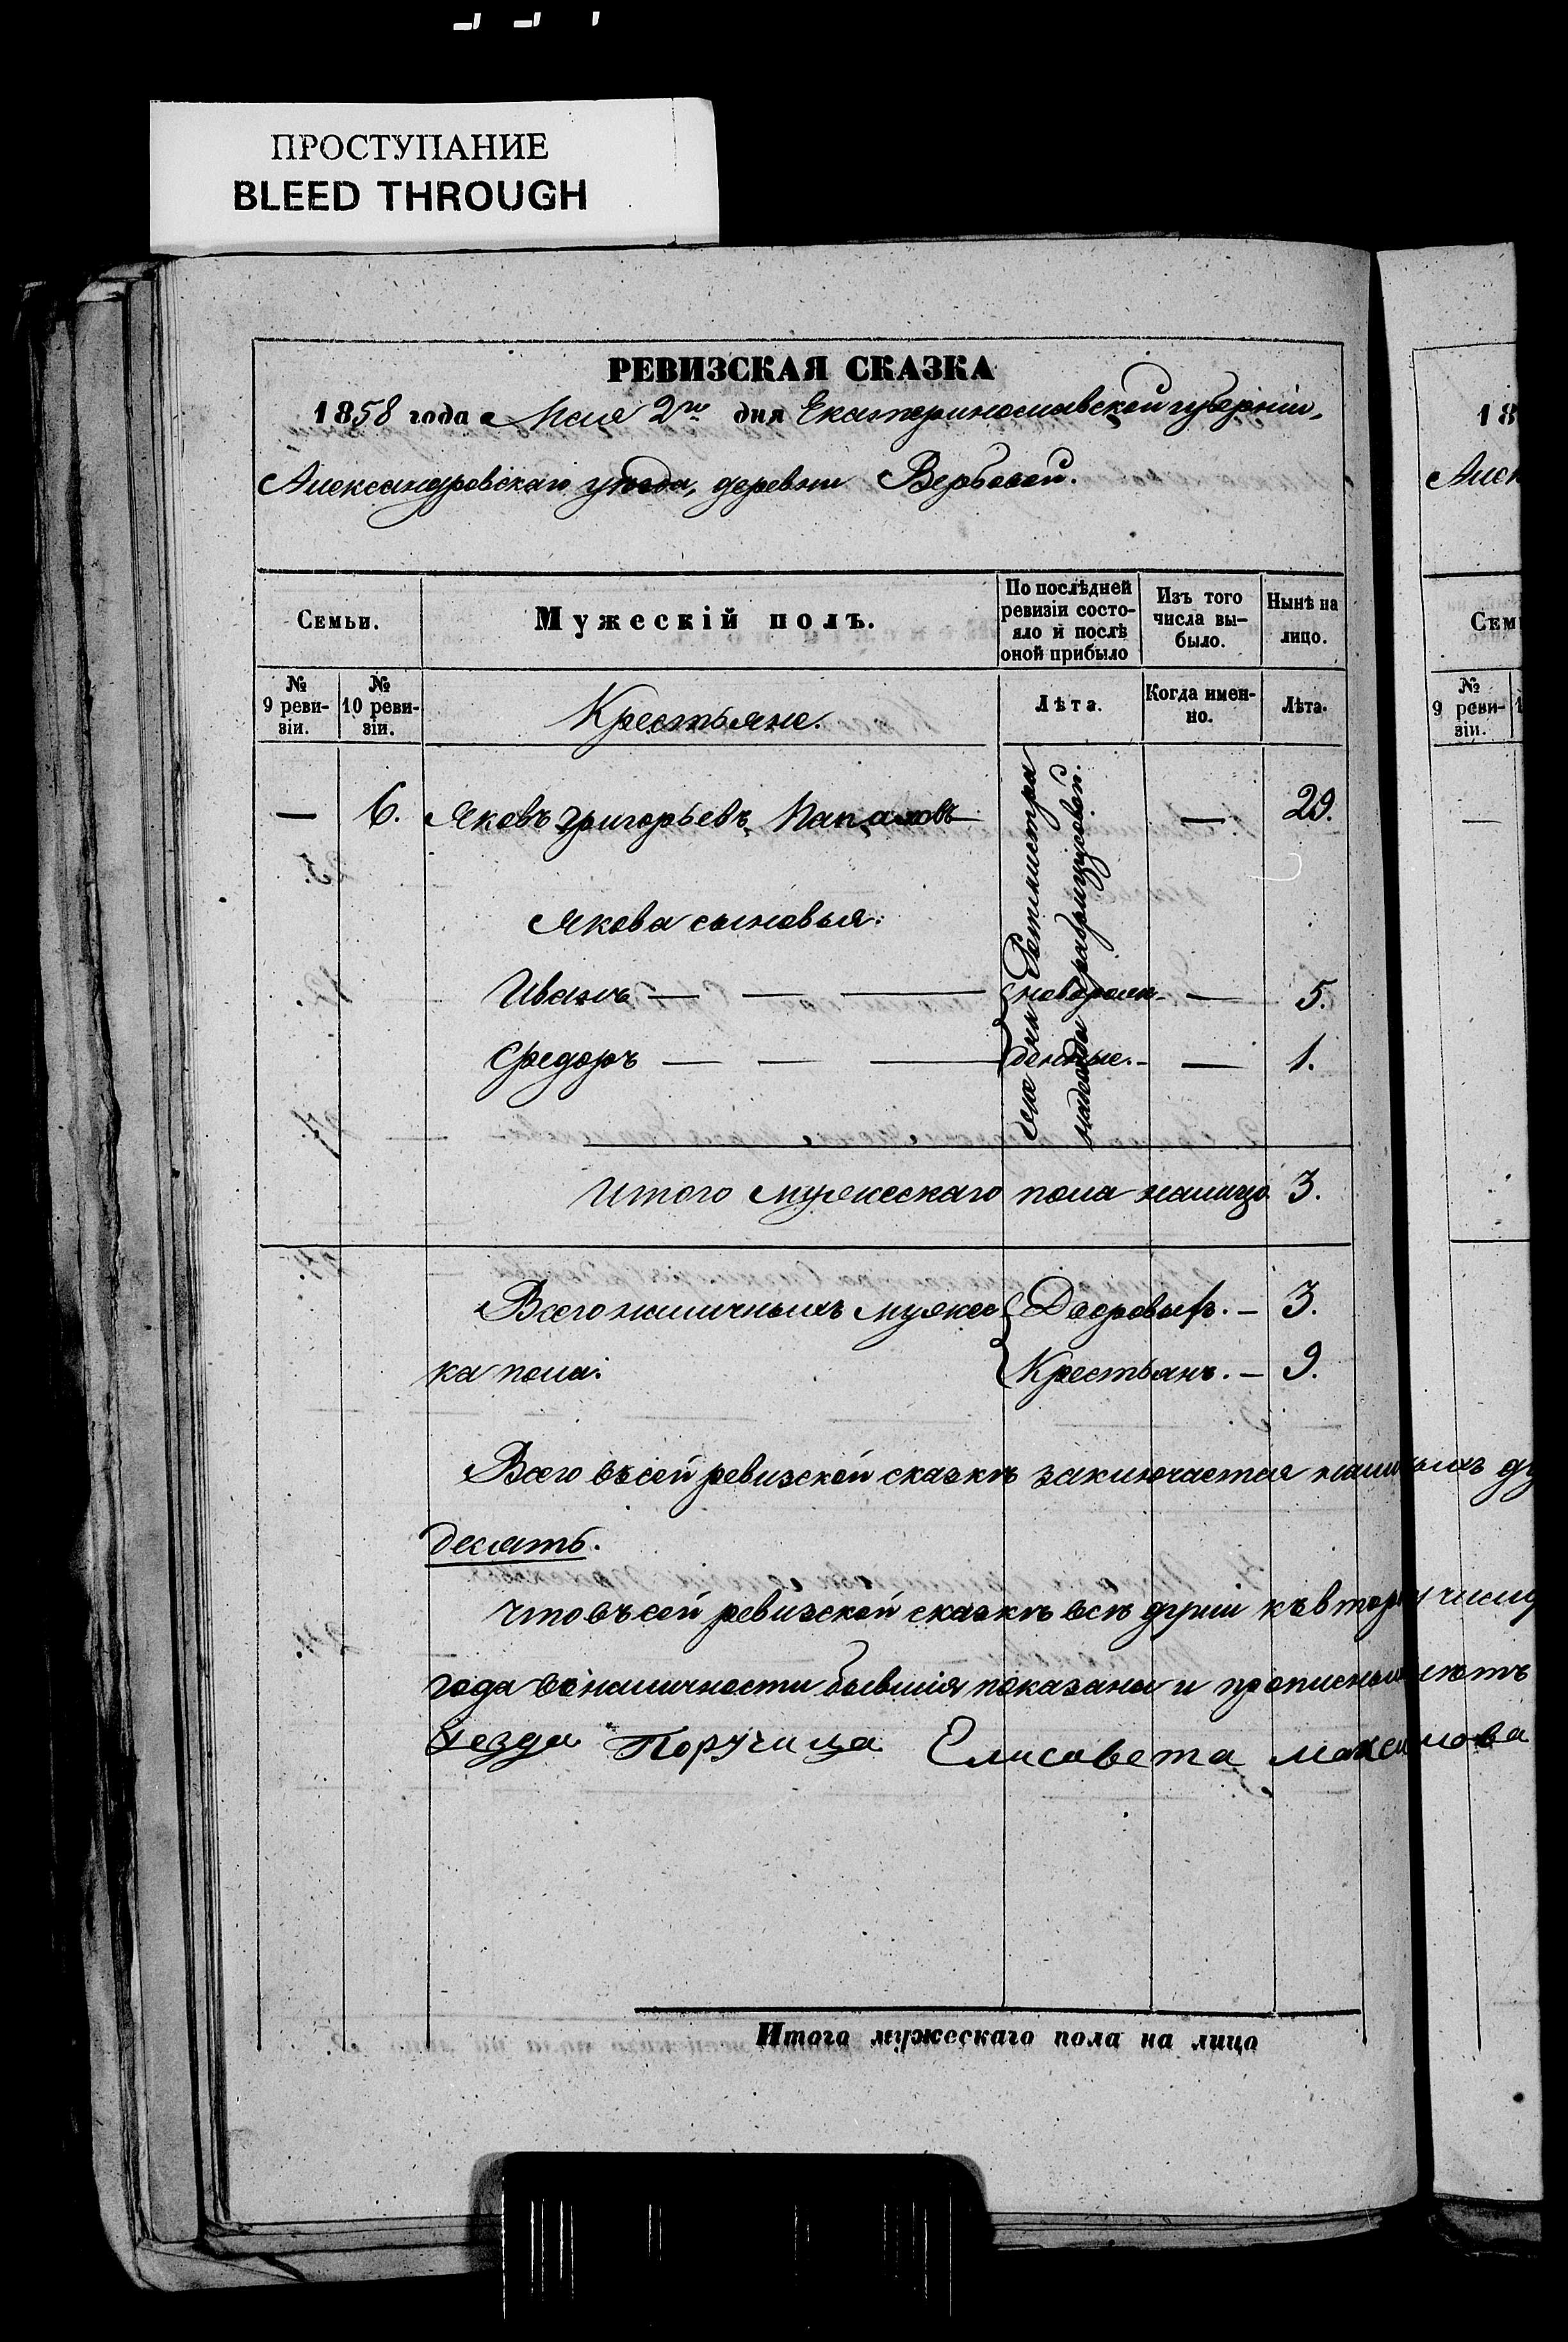 ПРОСТУПАНИЕ
BLEED THROUGH
РЕВИЗСКАЯ СКАЗКА
1858 года Мая 2го дня Екатеринославской губерніи,
Александровскаго уѣзда, деревни Вербовой.
Семьи.
Мужескій полъ.
По послѣдней ревизіи состояло и послѣ оной прибыло
Изъ того числа выбыло.
Нынѣ на лицо.
№ 9 ревизіи.
№ 10 ревизіи.
Крестьяне.
Лѣта.
Когда именно.
Лѣта.
— 6. Яковъ Григорьевъ — 29.
Якова сыновья:
Иванъ — — — новорож- — 5.
Федоръ — — — денные. — 1.
Ротмистра
Итого мужескаго пола налицо 3.
Всего наличныхъ мужес- Дворовыхъ. — 3.
ка пола: Крестьянъ. — 9.
Всего въ сей ревизской сказкѣ заключается
десять.
Что въ сей ревизской сказкѣ всѣ души къ числу
года въ наличности бывшія показаны и
Поручица Елисавета
Итого мужескаго пола на лицо
18
Алек
Сем
№ 9 ревизіи.